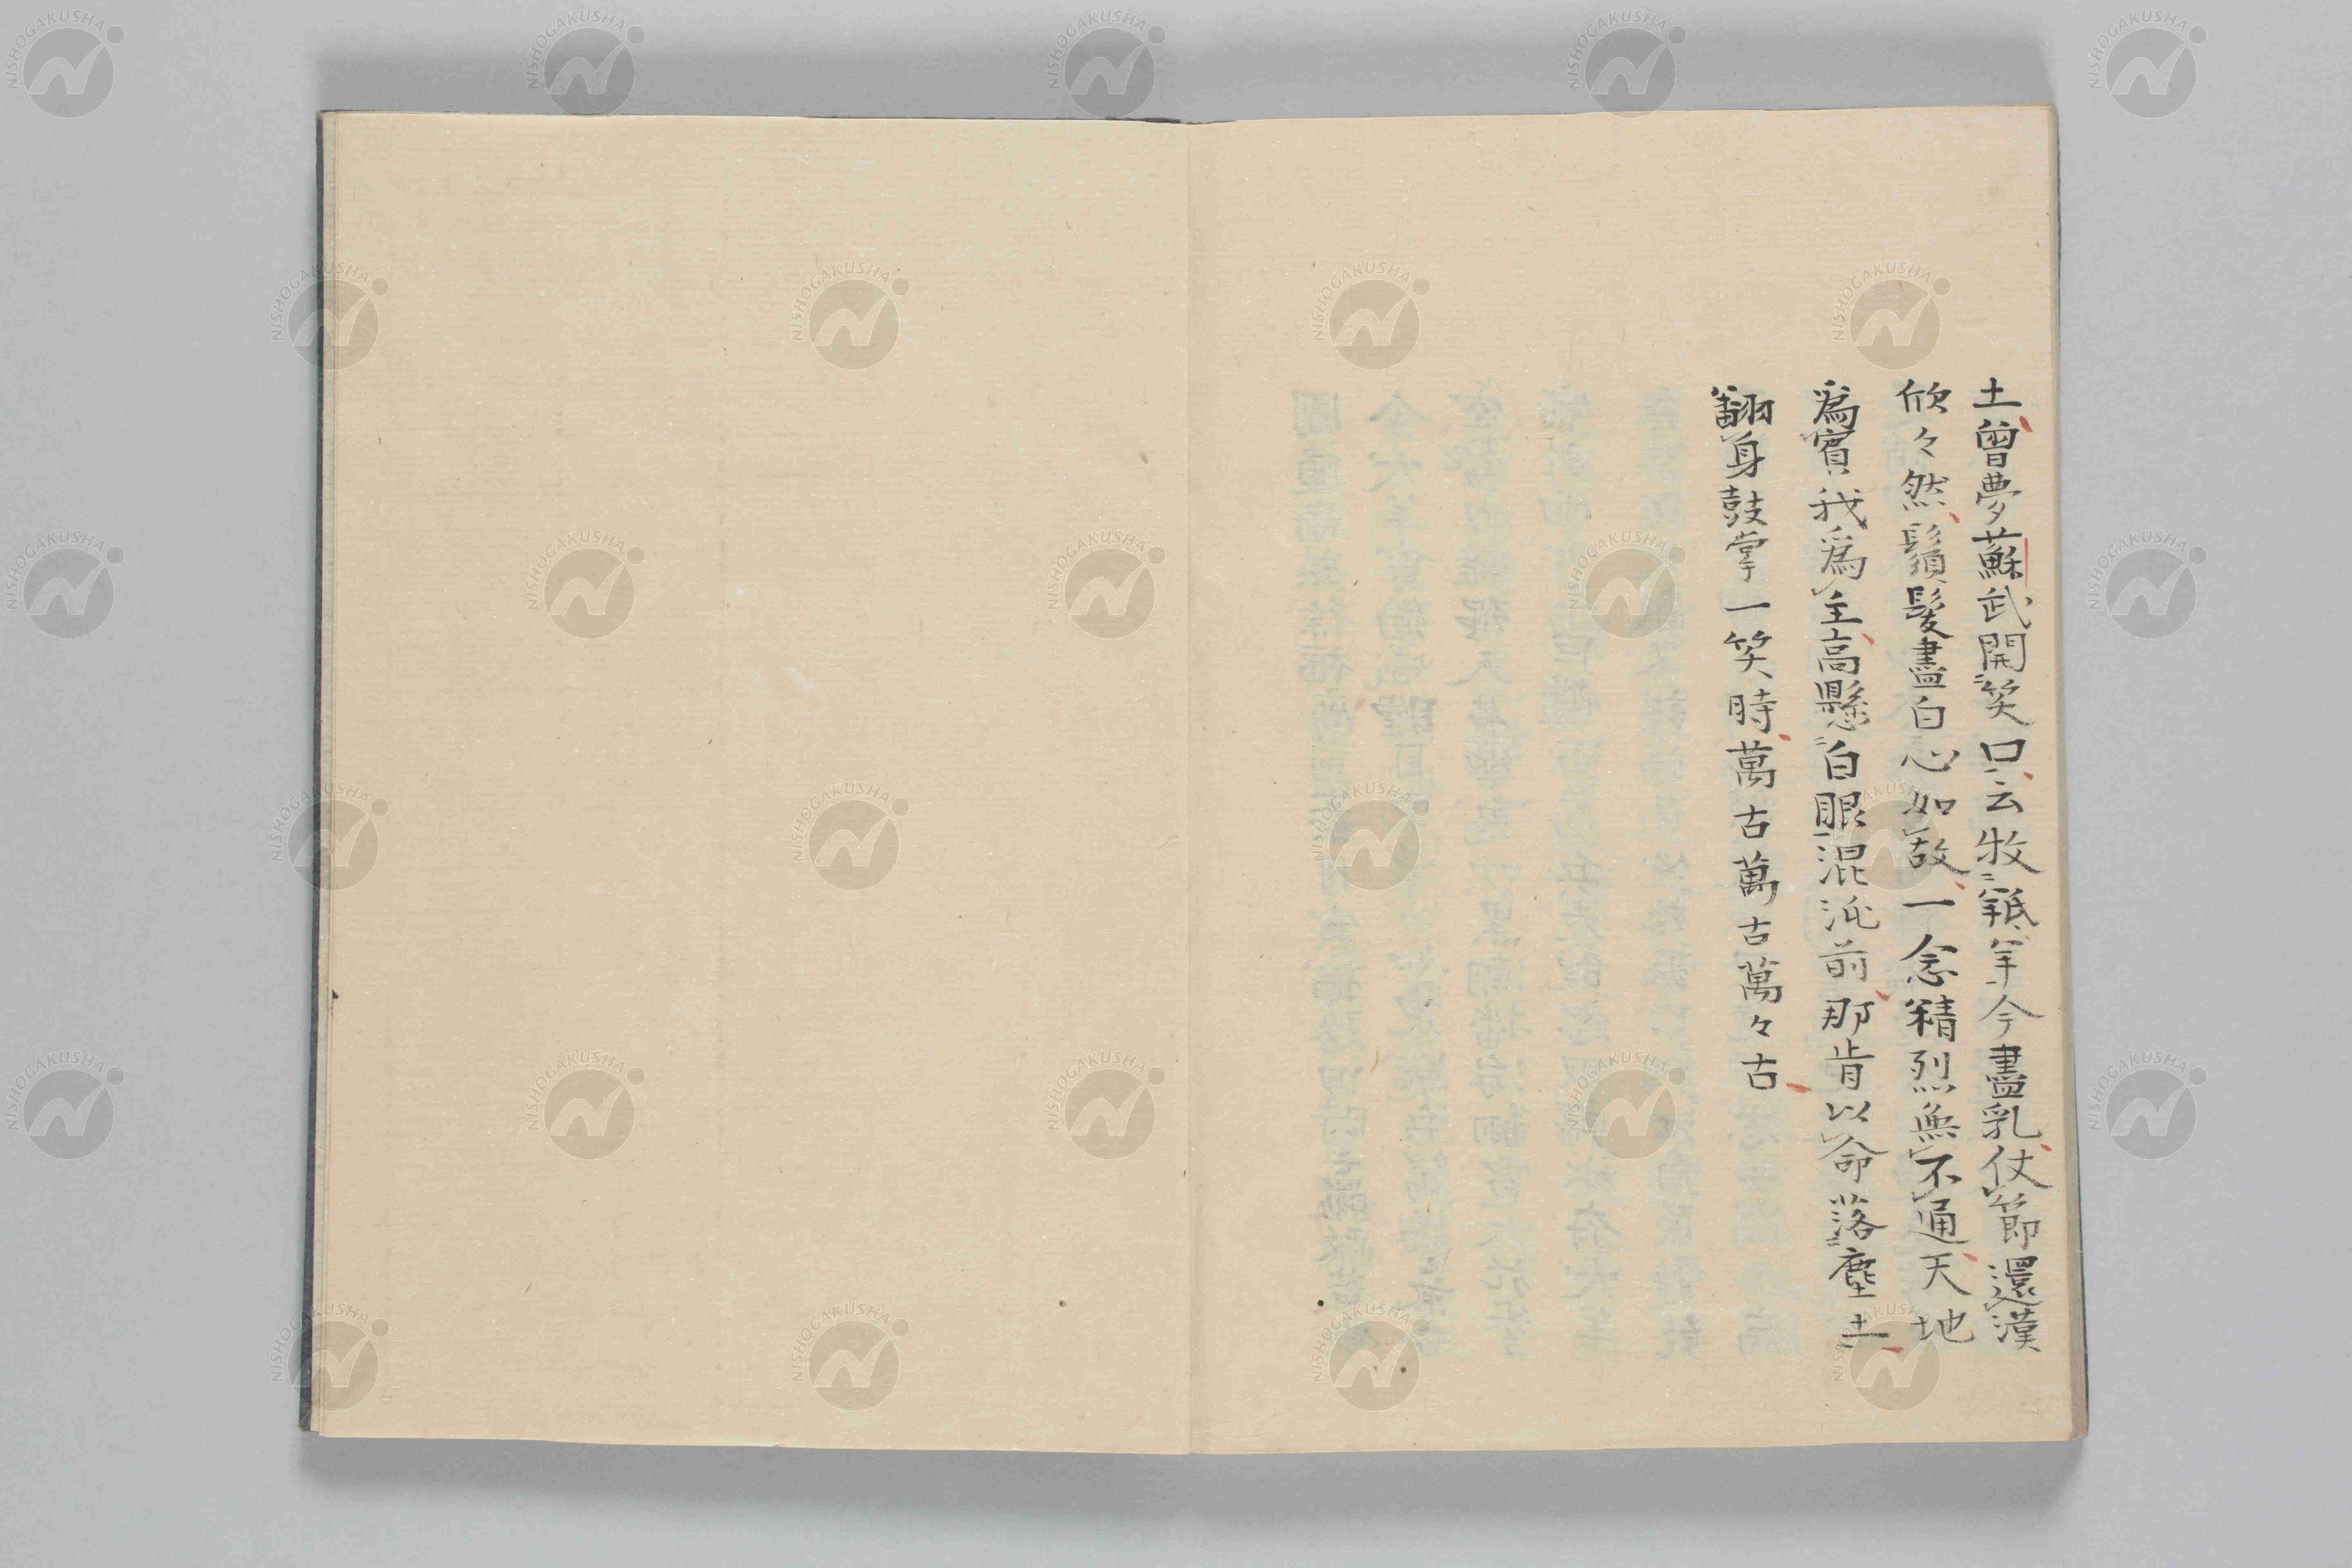 土曾夢蘇武開笑口云牧羝羊今盡乳仗節還漢
欣々然鬚髮盡白心如故一念精烈無不通天地
為賓我為主高懸白眼混沌前那肯以命落塵土
翻身鼓掌一笑時萬古萬古萬々古
NISHOGAKUSHA